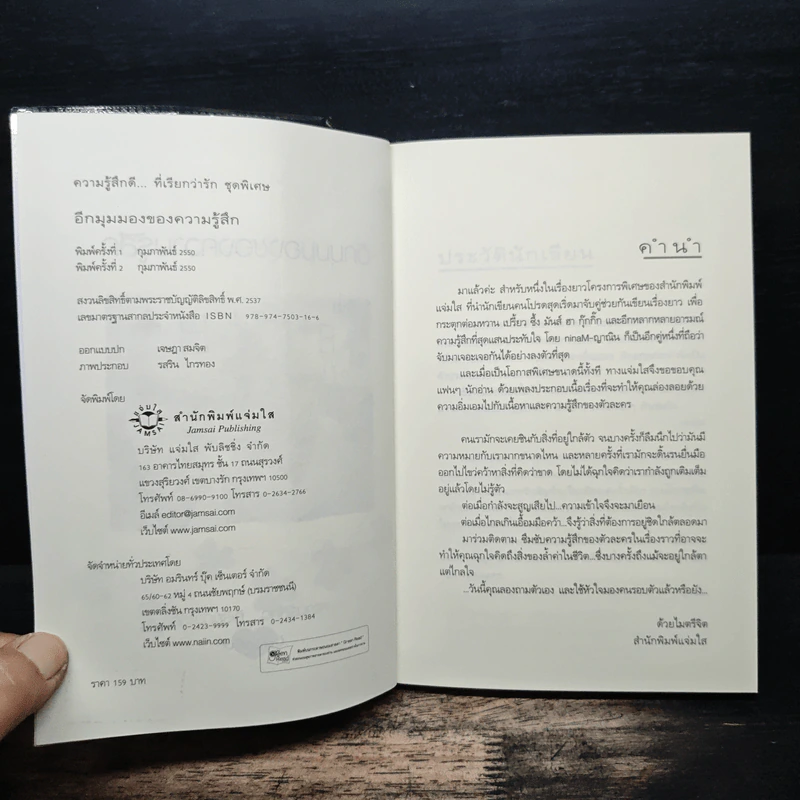 ความรู้สึกดี... ที่เรียกว่ารัก ชุดพิเศษ
อีกมุมมองของความรู้สึก
พิมพ์ครั้งที่ 1 กุมภาพันธ์ 2550
พิมพ์ครั้งที่ 2 กุมภาพันธ์ 2550
สงวนลิขสิทธิ์ตามพระราชบัญญัติลิขสิทธิ์ พ.ศ. 2537
เลขมาตรฐานสากลประจำหนังสือ ISBN 978-974-7503-16-6
ออกแบบปก เจษฎา สมจิต
ภาพประกอบ รสริน ไกรทอง
จัดพิมพ์โดย
แจ่มใส
JAMSAI
สำนักพิมพ์แจ่มใส
Jamsai Publishing
บริษัท แจ่มใส พับลิชชิ่ง จำกัด
163 อาคารไทยสมุทร ชั้น 17 ถนนสุรวงศ์
แขวงสุริยวงศ์ เขตบางรัก กรุงเทพฯ 10500
โทรศัพท์ 08-6990-9100 โทรสาร 0-2634-2766
อีเมล์ editor@jamsai.com
เว็บไซต์ www.jamsai.com
จัดจำหน่ายทั่วประเทศโดย
บริษัท อมรินทร์ บุ๊ค เซ็นเตอร์ จำกัด
65/60-62 หมู่ 4 ถนนชัยพฤกษ์ (บรมราชชนนี)
เขตตลิ่งชัน กรุงเทพฯ 10170
โทรศัพท์ 0-2423-9999 โทรสาร 0-2434-1384
เว็บไซต์ www.naiin.com
ราคา 159 บาท
คำนำ
มาแล้วค่ะ สำหรับหนึ่งในเรื่องยาวโครงการพิเศษของสำนักพิมพ์
แจ่มใส ที่นำนักเขียนคนโปรดสุดเริ่ดมาจับคู่ช่วยกันเขียนเรื่องยาว เพื่อ
กระตุกต่อมหวาน เปรี้ยว ซึ้ง มันส์ ฮา กุ๊กกิ๊ก และอีกหลากหลายอารมณ์
ความรู้สึกที่สุดแสนประทับใจ โดย ninaM-ญาณิน ก็เป็นอีกคู่หนึ่งที่ถือว่า
จับมาเจอะเจอกันได้อย่างลงตัวที่สุด
และเมื่อเป็นโอกาสพิเศษขนาดนี้ทั้งที ทางแจ่มใสจึงขอขอบคุณ
แฟนๆ นักอ่าน ด้วยเพลงประกอบเนื้อเรื่องที่จะทำให้คุณล่องลอยด้วย
ความอิ่มเอมไปกับเนื้อหาและความรู้สึกของตัวละคร
คนเรามักจะเคยชินกับสิ่งที่อยู่ใกล้ตัว จนบางครั้งก็ลืมนึกไปว่ามันมี
ความหมายกับเรามากขนาดไหน และหลายครั้งที่เรามักจะดิ้นรนยื่นมือ
ออกไปไขว่คว้าหาสิ่งที่คิดว่าขาด โดยไม่ได้ฉุกใจคิดว่าเรากำลังถูกเติมเต็ม
อยู่แล้วโดยไม่รู้ตัว
ต่อเมื่อกำลังจะสูญเสียไป...ความเข้าใจจึงจะมาเยือน
ต่อเมื่อไกลเกินเอื้อมมือคว้า...จึงรู้ว่าสิ่งที่ต้องการอยู่ชิดใกล้ตลอดมา
มาร่วมติดตาม ซึมซับความรู้สึกของตัวละครในเรื่องราวที่อาจจะ
ทำให้คุณฉุกใจคิดถึงสิ่งของล้ำค่าในชีวิต...ซึ่งบางครั้งถึงแม้จะอยู่ใกล้ตา
แต่ไกลใจ
...วันนี้คุณลองถามตัวเอง และใช้หัวใจมองคนรอบตัวแล้วหรือยัง...
ด้วยไมตรีจิต
สำนักพิมพ์แจ่มใส